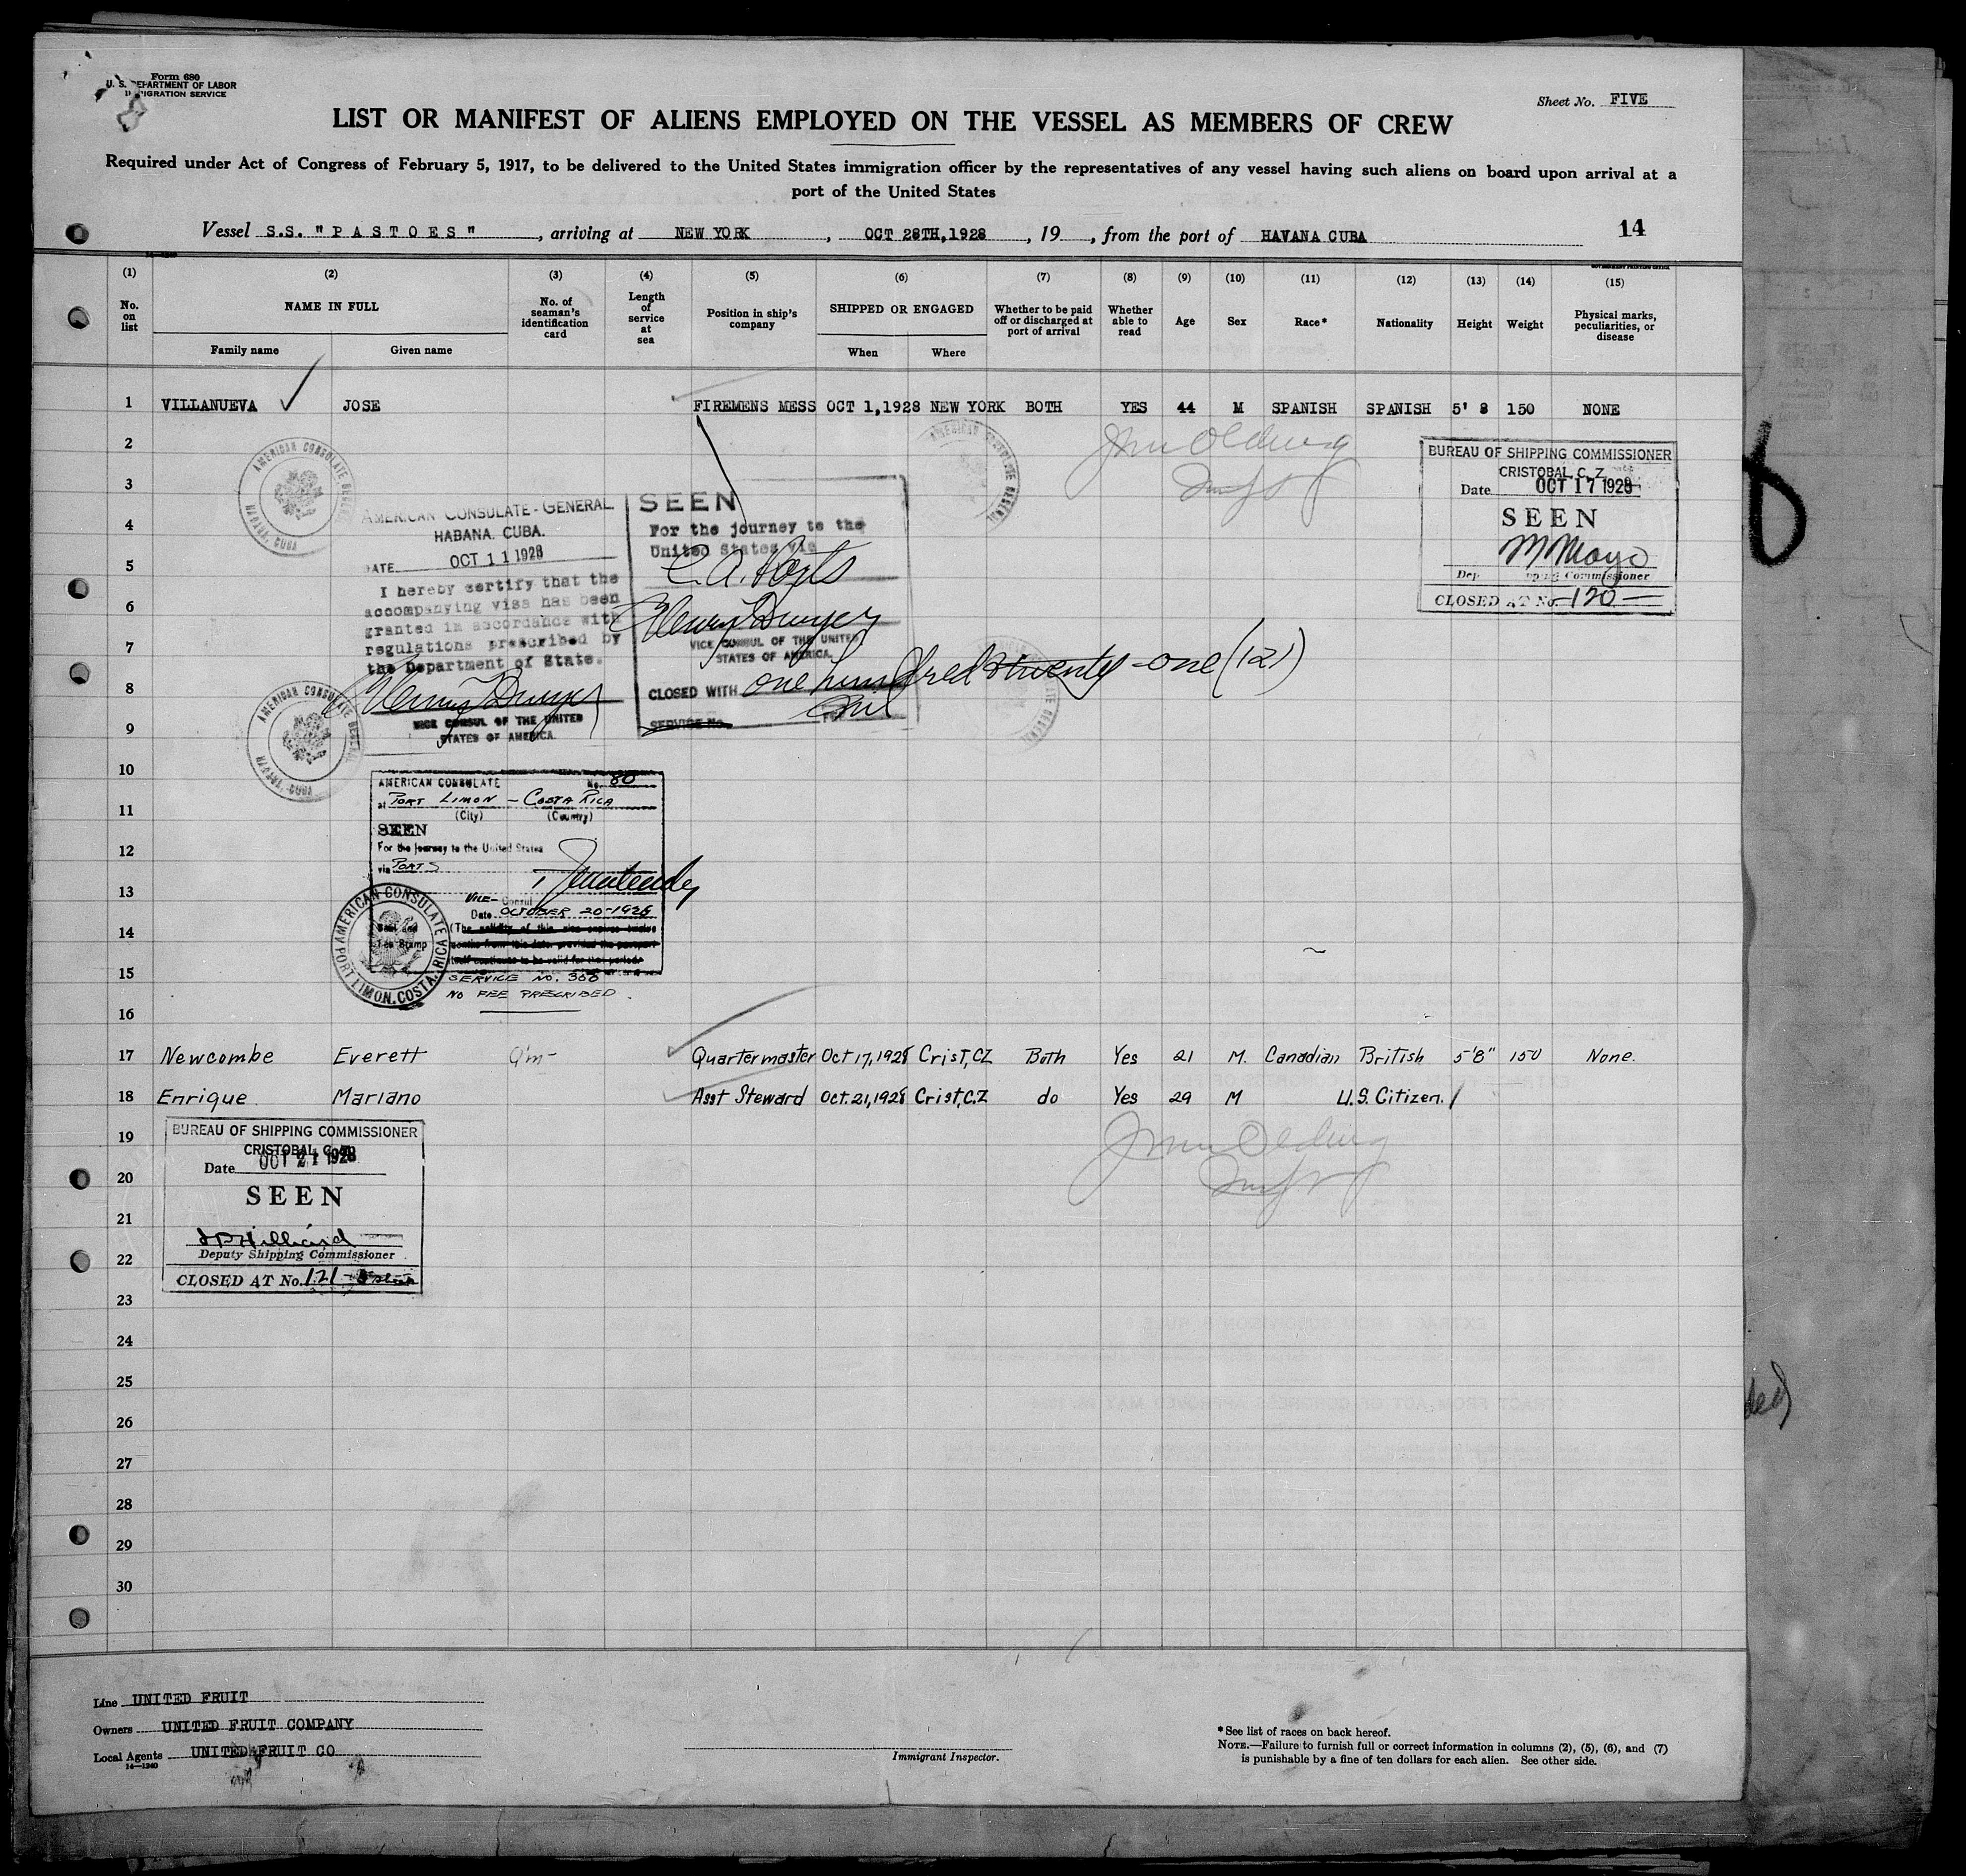 Form 680
U. S. DEPARTMENT OF LABOR
IMMIGRATION SERVICE
Sheet No. FIVE
LIST OR MANIFEST OF ALIENS EMPLOYED ON THE VESSEL AS MEMBERS OF CREW
Required under Act of Congress of February 5, 1917, to be delivered to the United States immigration officer by the representatives of any vessel having such aliens on board upon arrival at a
port of the United States
Vessel S.S. "PASTOES", arriving at NEW YORK, OCT 28TH,1928, 19 , from the port of HAVANA CUBA
14
(1) (2) (3) (4) (5) (6) (7) (8) (9) (10) (11) (12) (13) (14) (15)
No. on list
NAME IN FULL
Family name Given name
No. of seaman's identification card
Length of service at sea
Position in ship's company
SHIPPED OR ENGAGED
When Where
Whether to be paid off or discharged at port of arrival
Whether able to read
Age
Sex
Race*
Nationality
Height
Weight
Physical marks, peculiarities, or disease
1 VILLANUEVA JOSE FIREMENS MESS OCT 1,1928 NEW YORK BOTH YES 44 M SPANISH SPANISH 5' 8 150 NONE
2
3
4
5
6
7
8
9
10
11
12
13
14
15
16
AMERICAN CONSULATE GENERAL
AMERICAN CONSULATE-GENERAL
HABANA. CUBA.
DATE OCT 11 1928
I hereby certify that the
accompanying visa has been
granted in accordance with
regulations prescribed by
the Department of State.
Henry Dwyer
VICE CONSUL OF THE UNITED
STATES OF AMERICA.
SEEN
For the journey to the
United States via
Henry Dwyer
VICE CONSUL OF THE UNITED
STATES OF AMERICA.
CLOSED WITH one hundred twenty-one (121)
SERVICE No.
BUREAU OF SHIPPING COMMISSIONER
CRISTOBAL, C. Z.
Date OCT 17 1928
SEEN
M Mayo
Shipping Commissioner
CLOSED AT No. 120
AMERICAN CONSULATE No. 80
at PORT LIMON - COSTA RICA
(City) (Country)
SEEN
For the journey to the United States
via PORTS
VICE- Consul
Date OCTOBER 20-1928
(The validity of this visa expires twelve
months from this date, provided the passport
itself continues to be valid for that period)
AMERICAN CONSULATE
PORT LIMON, COSTA RICA
SERVICE NO. 366
NO FEE PRESCRIBED.
17 Newcombe Everett Qm- Quartermaster Oct 17,1928 Crist,CZ Both Yes 21 M. Canadian British 5'8" 150 None.
18 Enrique Mariano Asst Steward Oct.21,1928 Crist,C.Z do Yes 29 M U.S. Citizen.
19
20
21
22
23
24
25
26
27
28
29
30
BUREAU OF SHIPPING COMMISSIONER
CRISTOBAL, C. Z.
Date OCT 21 1928
SEEN
Deputy Shipping Commissioner
CLOSED AT No. 121
Line UNITED FRUIT
Owners UNITED FRUIT COMPANY
Local Agents UNITED FRUIT CO
14—1240
Immigrant Inspector.
*See list of races on back hereof.
NOTE.—Failure to furnish full or correct information in columns (2), (5), (6), and (7)
is punishable by a fine of ten dollars for each alien. See other side.